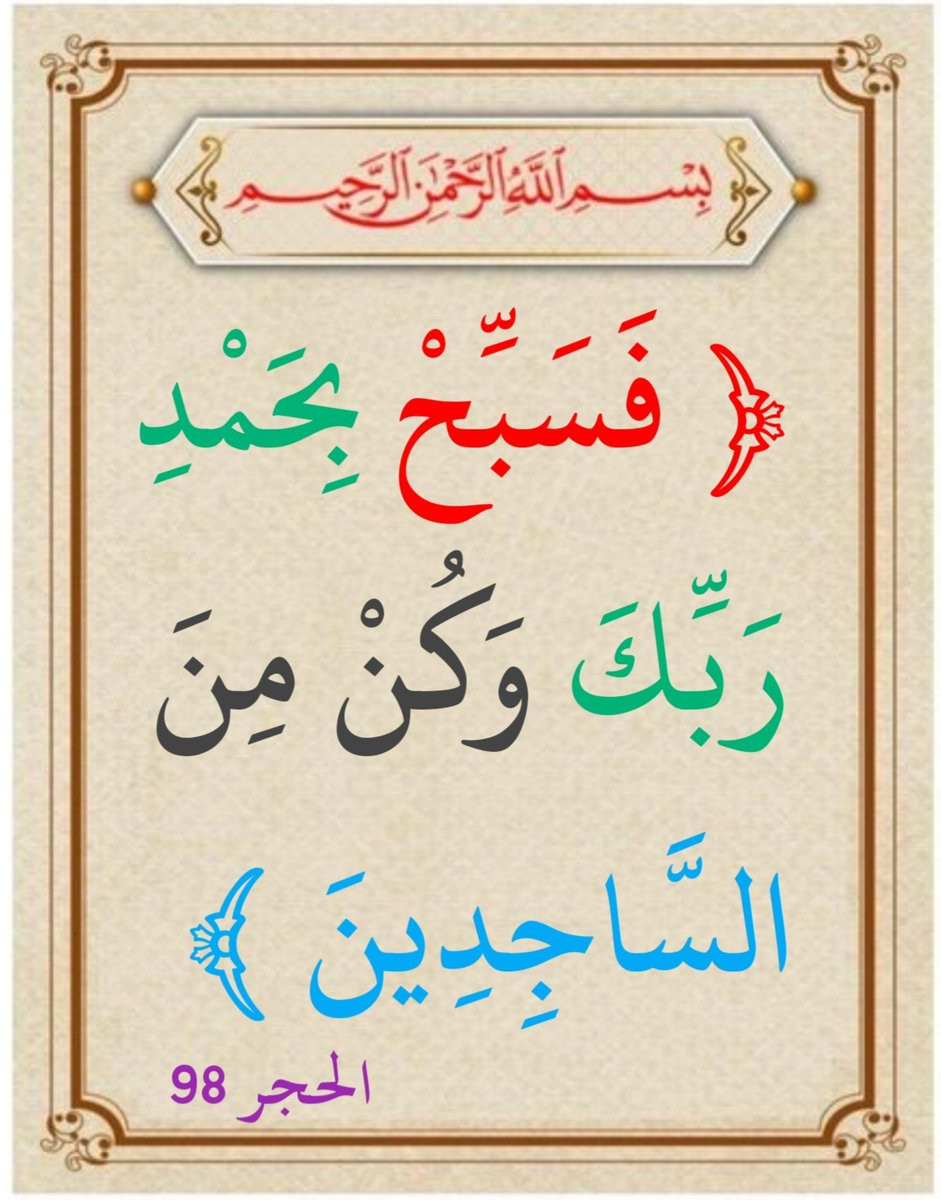 بِسْمِ ٱللَّهِ ٱلرَّحْمَٰنِ ٱلرَّحِيمِ
﴿ فَسَبِّحْ بِحَمْدِ
رَبِّكَ وَكُنْ مِنَ
السَّاجِدِينَ ﴾
الحجر 98